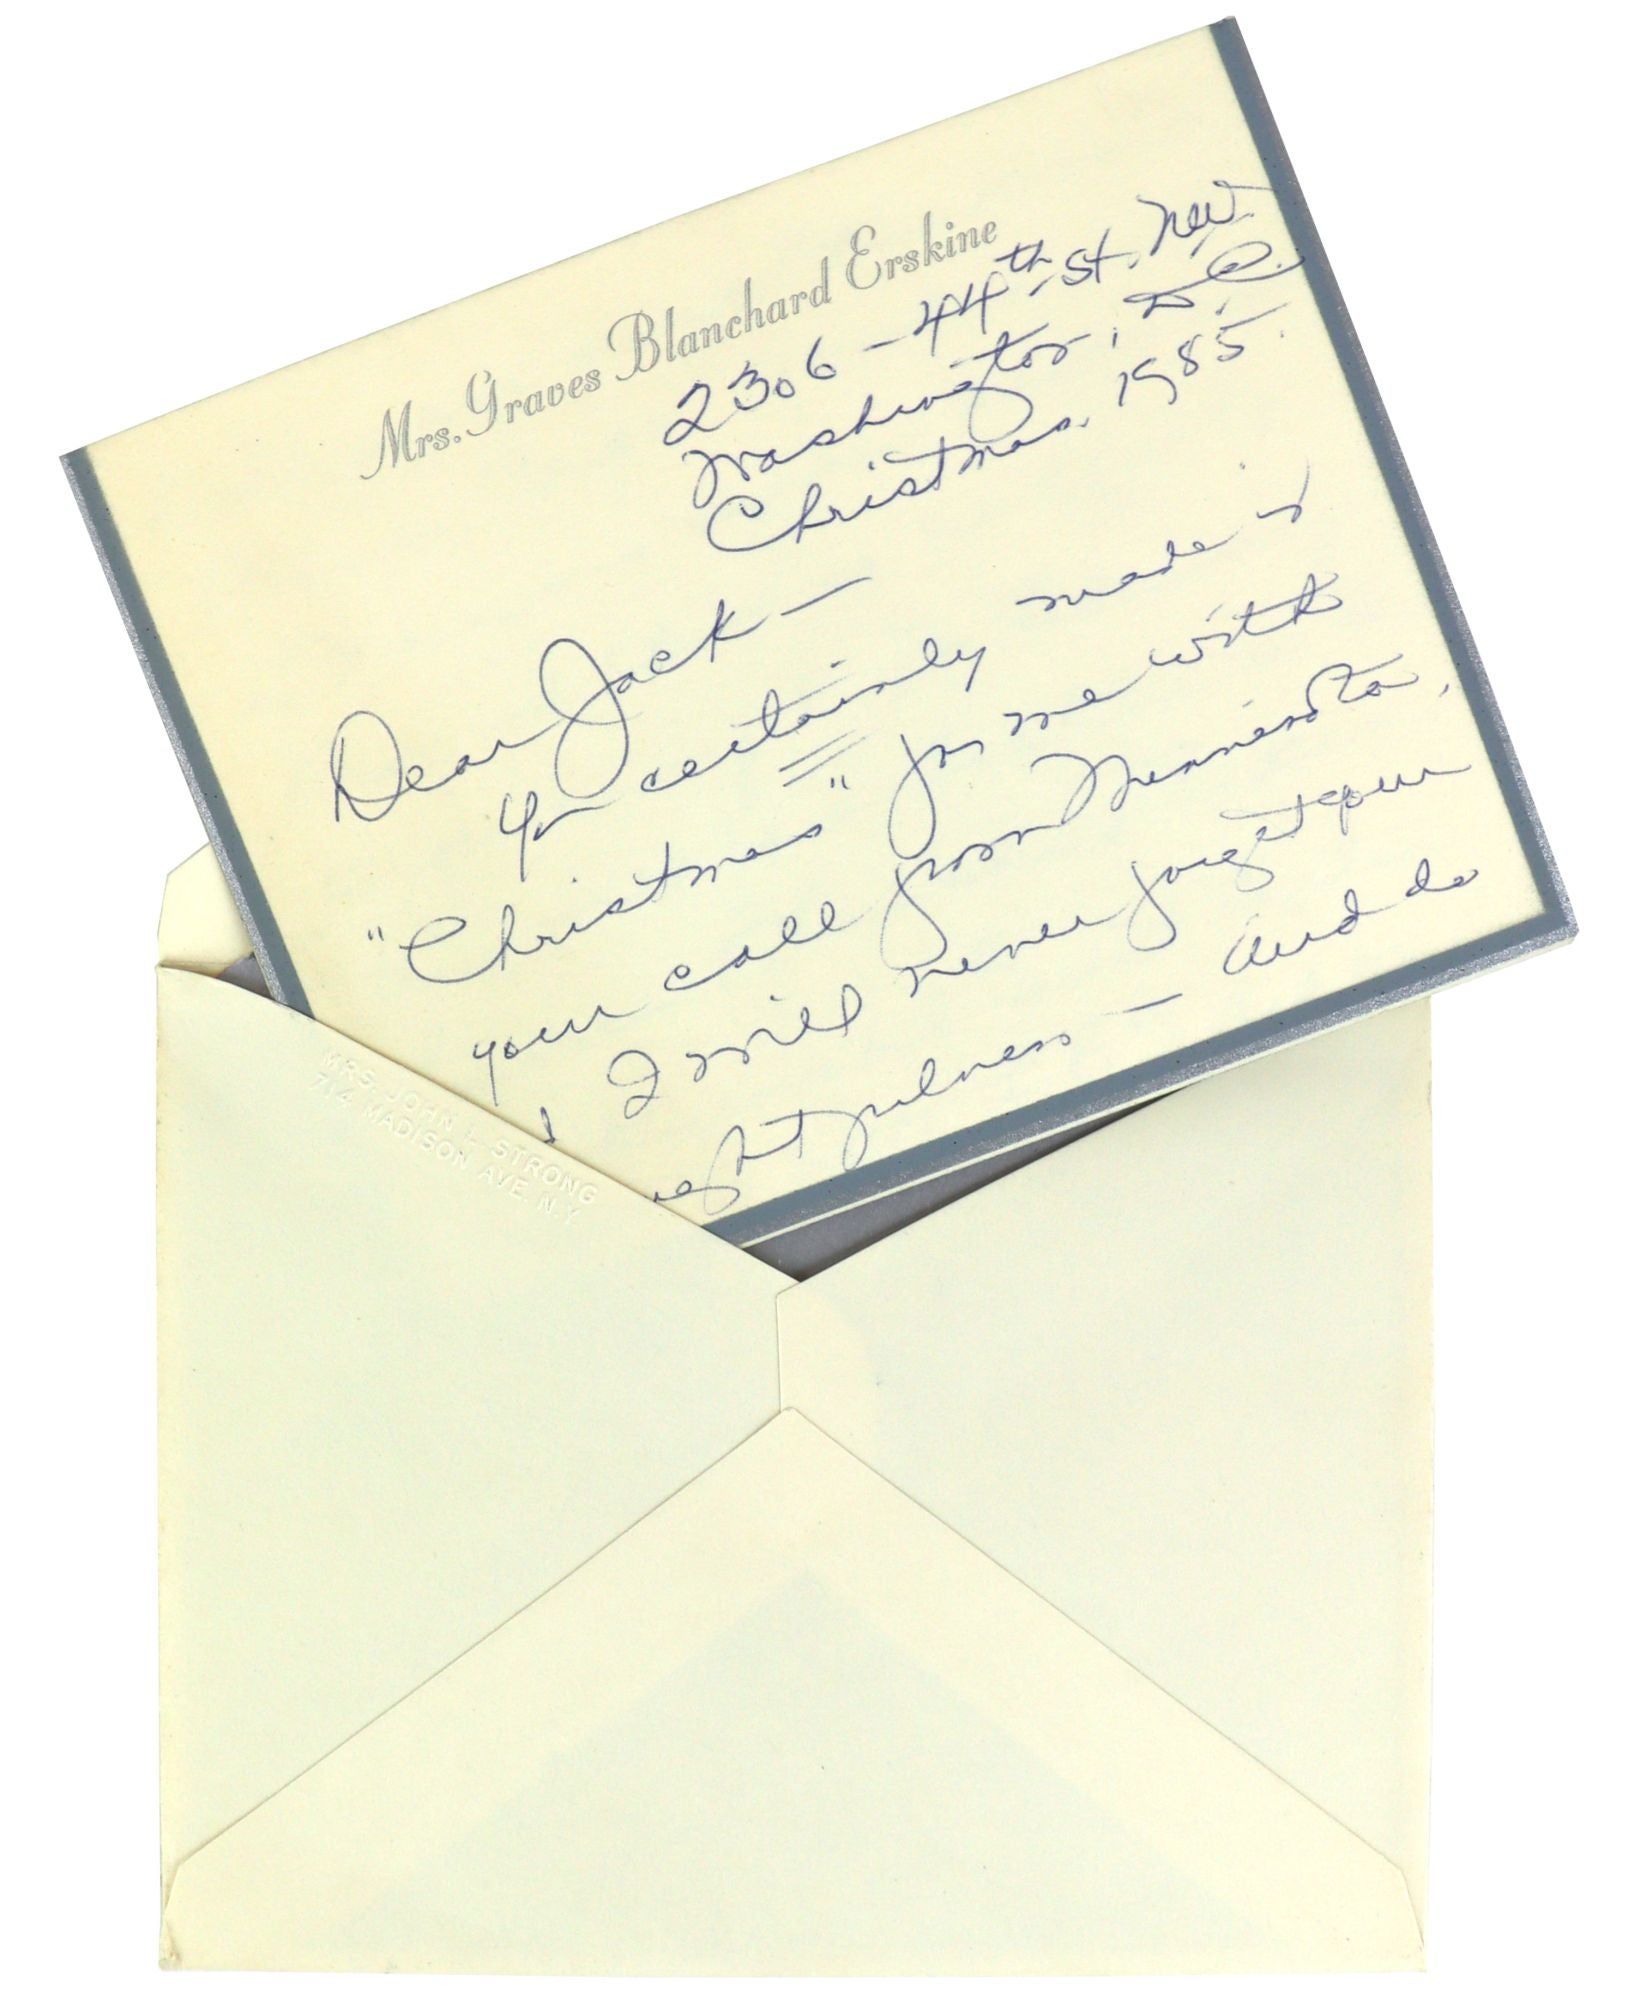 Mrs. Graves Blanchard Erskine
2306 - 44th St. NW.
Washington, D.C.
Christmas. 1985.
Dear Jack —
You certainly made
"Christmas" for me with
your call from Minnesota,
I will never forget your
ghtfulness — and do
MRS. JOHN L. STRONG
714 MADISON AVE. N.Y.